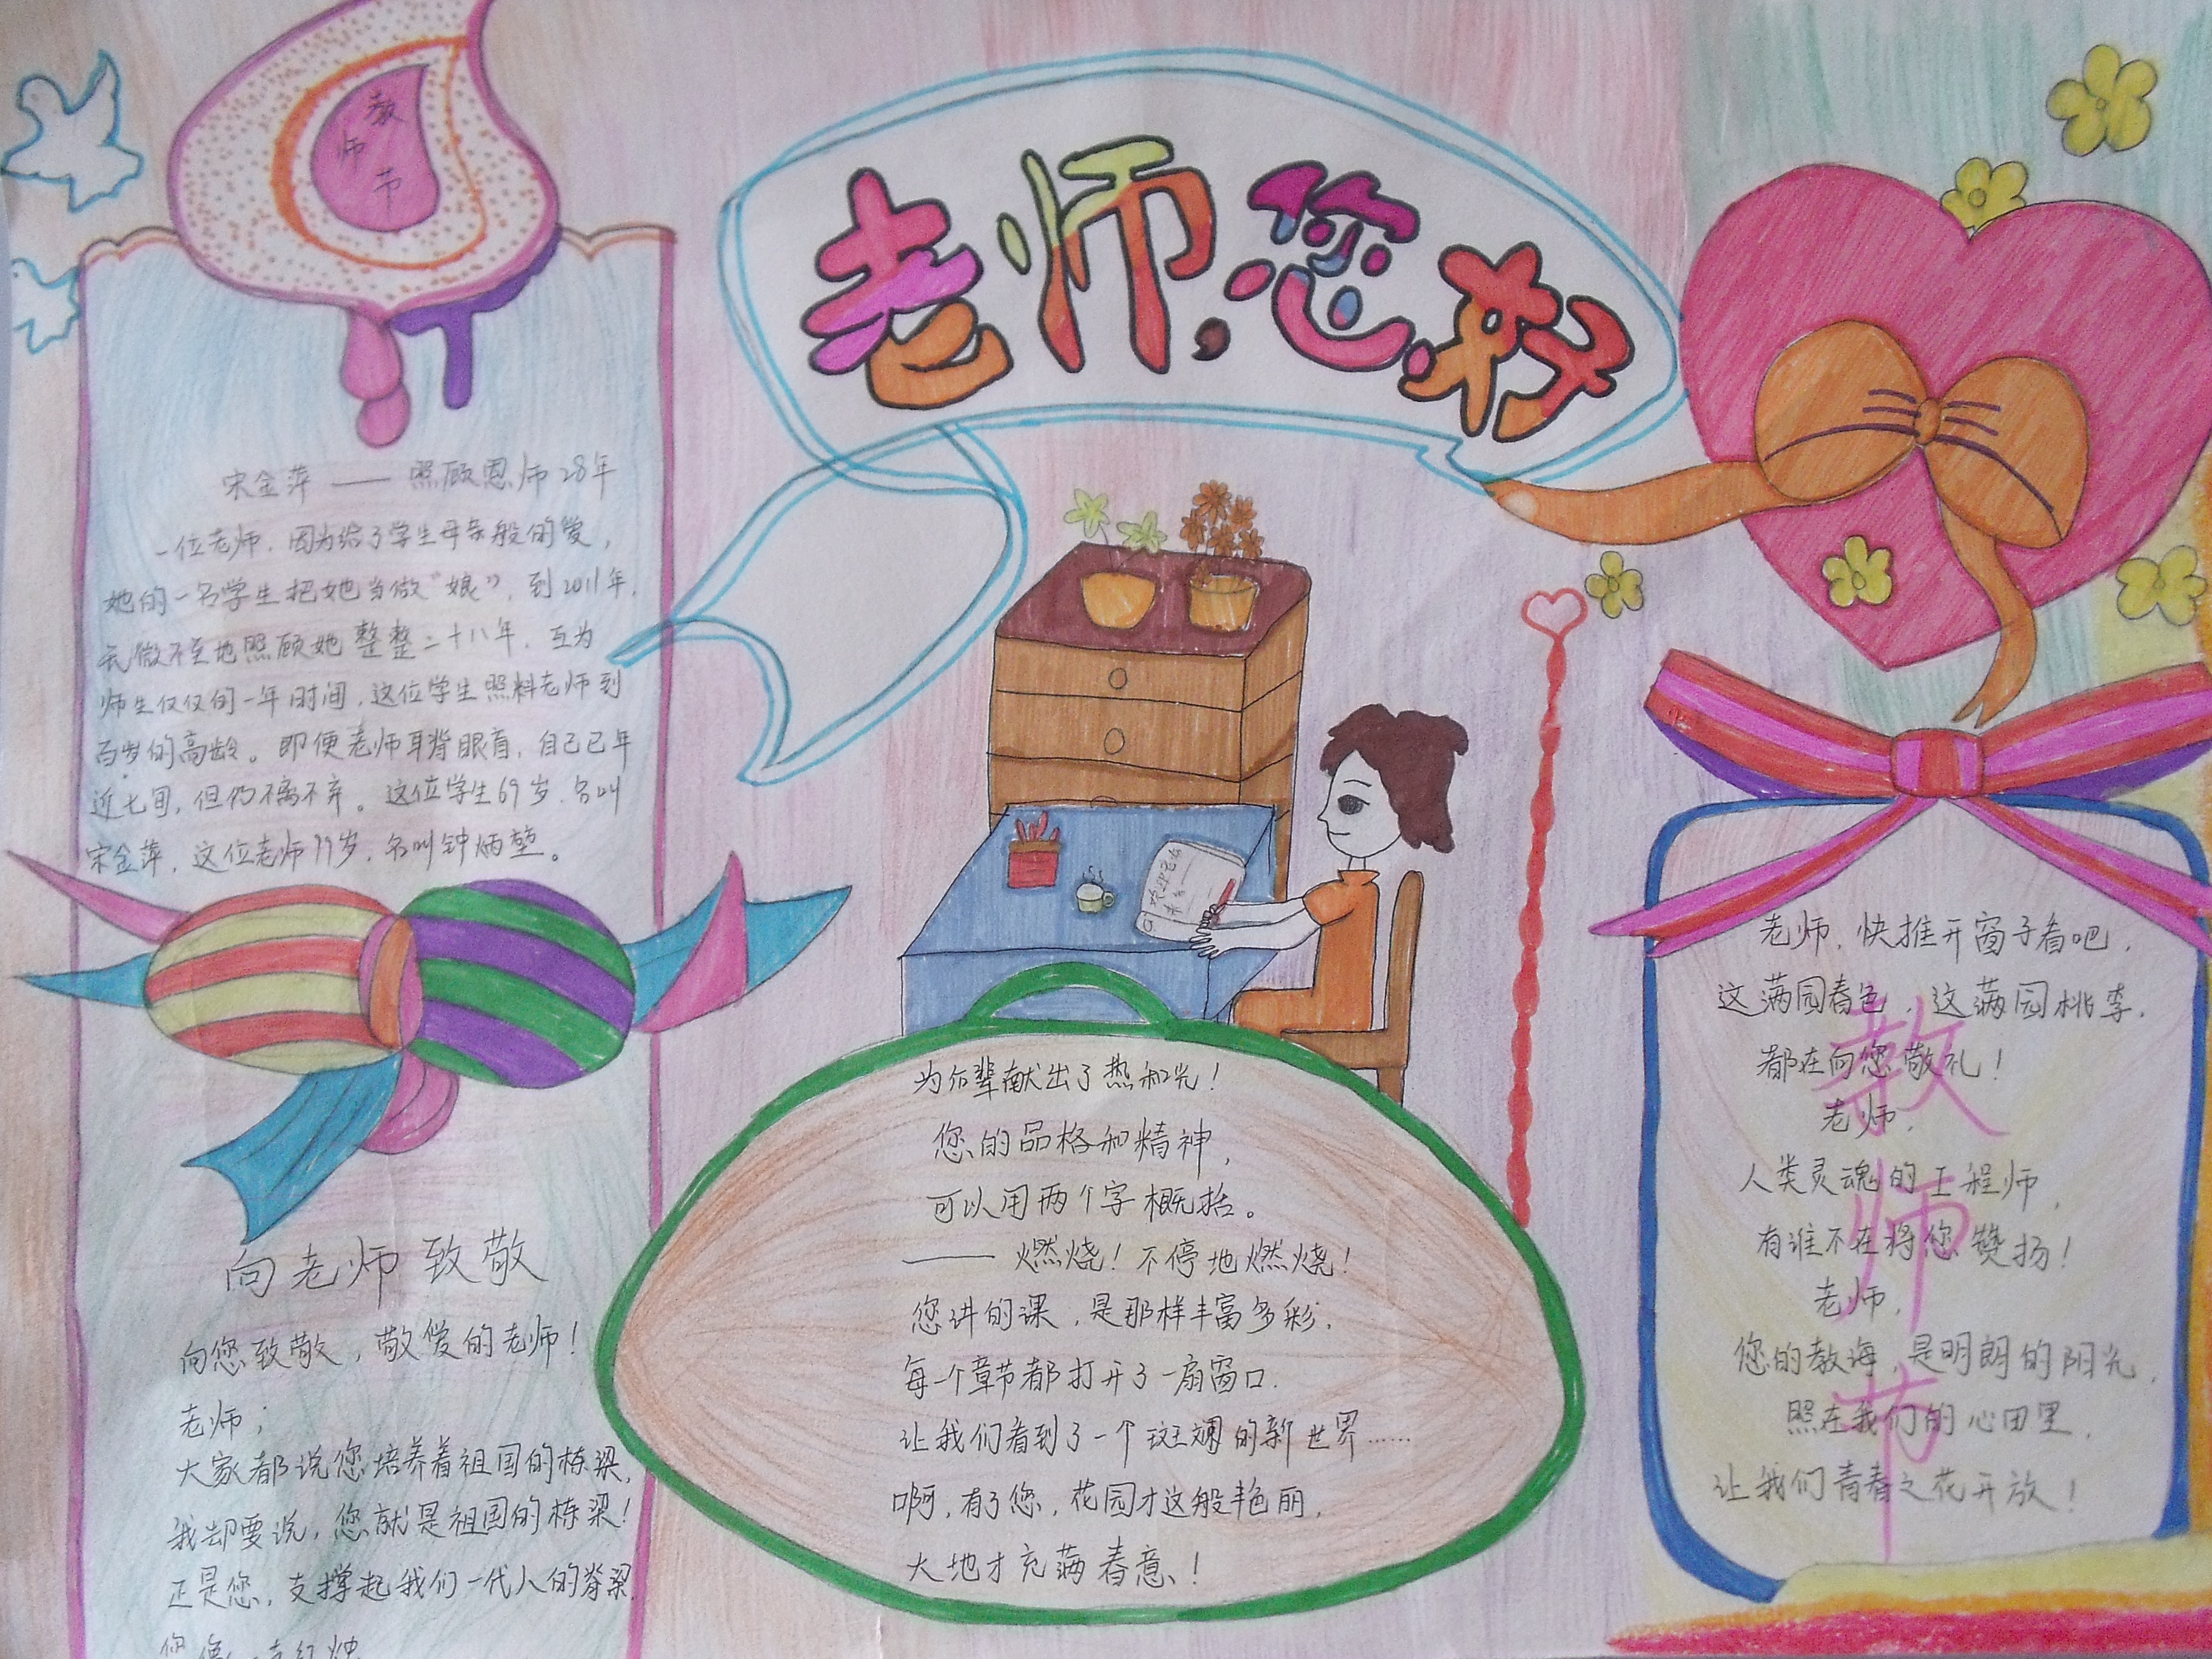 教
师
节
老师,您好
宋金萍——照顾恩师28年
一位老师,因为给了学生母亲般的爱,
她的一名学生把她当做“娘”,到2011年,
无微不至地照顾她整整二十八年,互为
师生仅仅的一年时间,这位学生照料老师到
百岁的高龄。即便老师耳背眼盲,自己已年
近七旬,但仍不离不弃。这位学生69岁,名叫
宋金萍,这位老师99岁,名叫钟炳堃。
向老师致敬
向您致敬,敬爱的老师!
老师;
大家都说您培养着祖国的栋梁,
我却要说,您就是祖国的栋梁!
正是您,支撑起我们一代人的脊梁.
您像一支红烛
为后辈献出了热和光!
您的品格和精神,
可以用两个字概括。
——燃烧!不停地燃烧!
您讲的课,是那样丰富多彩,
每一个章节都打开了一扇窗口.
让我们看到了一个斑斓的新世界……
啊,有了您,花园才这般艳丽,
大地才充满春意!
老师,快推开窗子看吧,
这满园春色,这满园桃李,
都在向您敬礼!
老师,
人类灵魂的工程师,
有谁不在将您赞扬!
老师,
您的教诲,是明朗的阳光,
照在我们的心田里,
让我们青春之花开放!
教
师
节